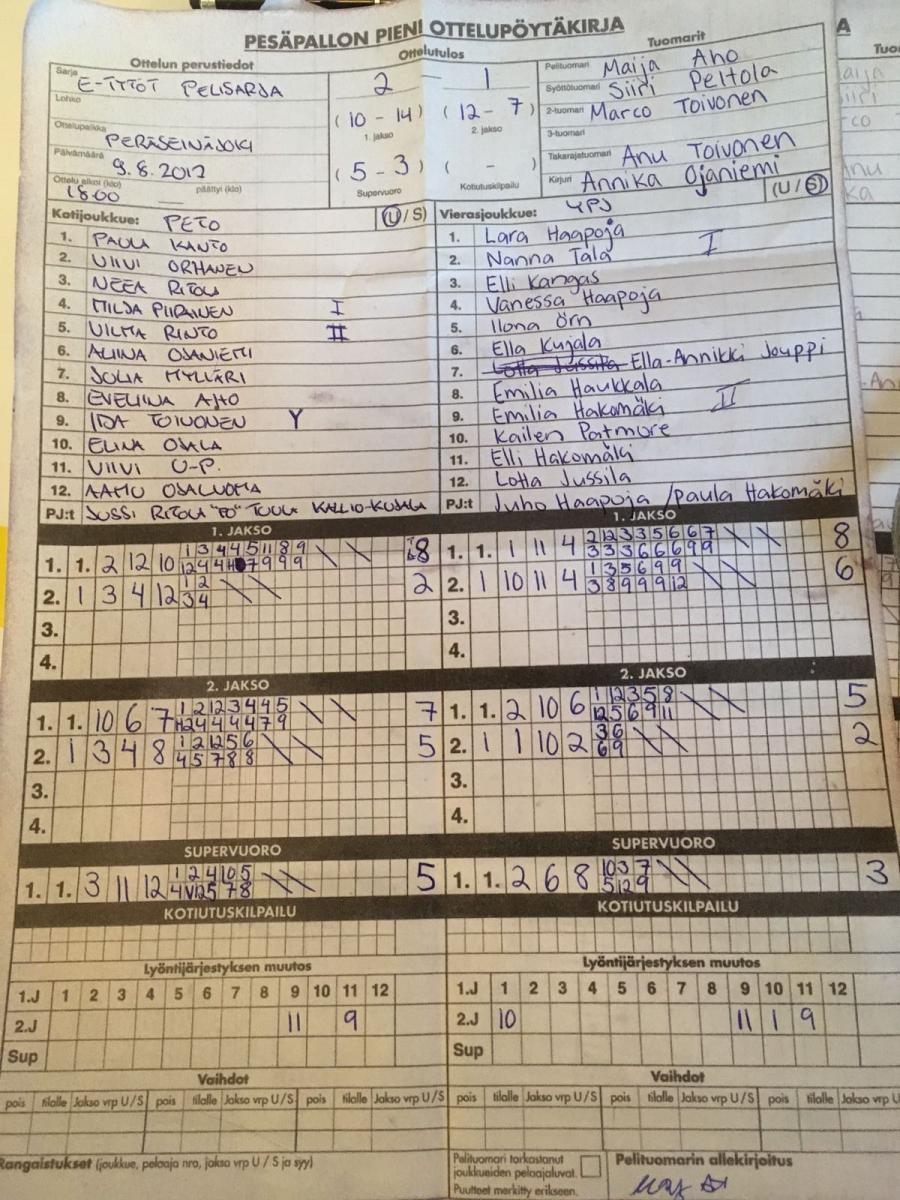 PESÄPALLON PIENI OTTELUPÖYTÄKIRJA
A
Ottelun perustiedot
Ottelutulos
Tuomarit
Sarja E-TYTÖT PELISARJA
Lohko
Ottelupaikka PERÄSEINÄJOKI
Päivämäärä 9.8.2017
Ottelu alkoi (klo) 18.00 päättyi (klo)
2 – 1
(10 – 14) (12 – 7)
1. jakso 2. jakso
(5 – 3) ( – )
Supervuoro Kotiutuskilpailu
Pelituomari Maija Aho
Syöttötuomari Siiri Peltola
2-tuomari Marco Toivonen
3-tuomari
Takarajatuomari Anu Toivonen
Kirjuri Annika Ojaniemi
Kotijoukkue: PETO (U/S)
1. PAULA KANTO
2. VIIVI ORHANEN
3. NEEA RITOLA
4. MILJA PIIRAINEN I
5. VILMA RINTO II
6. ALIINA OJANIEMI
7. JULIA MYLLÄRI
8. EVELIINA AHO
9. IDA TOIVONEN Y
10. ELINA OJALA
11. VIIVI U-P.
12. AAMU OJALUOMA
PJ:t JUSSI RITOLA "PJ" TUULA KALLIO-KUJALA
Vierasjoukkue: YPJ (U/S)
1. Lara Haapoja
2. Nanna Tala I
3. Elli Kangas
4. Vanessa Haapoja
5. Ilona Örn
6. Ella Kujala
7. Lotta Jussila Ella-Annikki Jouppi
8. Emilia Haukkala
9. Emilia Hakomäki II
10. Kailen Patmore
11. Elli Hakomäki
12. Lotta Jussila
PJ:t Juho Haapoja / Paula Hakomäki
1. JAKSO
1. 1. 2 12 10 8
2. 1 3 4 12 1 2 3 4 2
3.
4.
1. JAKSO
1. 1. 1 11 4 2 12 3 3 5 6 6 7 3 3 3 6 6 6 9 9 8
2. 1 10 11 4 1 3 5 6 9 9 3 8 9 9 9 12 6
3.
4.
2. JAKSO
1. 1. 10 6 7 1 2 12 3 4 4 5 7
2. 1 3 4 8 1 2 12 5 6 4 5 7 8 8 5
3.
4.
2. JAKSO
1. 1. 2 10 6 1 12 3 5 8 12 5 6 9 11 5
2. 1 1 10 2 3 6 6 9 2
3.
4.
SUPERVUORO
1. 1. 3 11 12 1 2 4 10 5 5
SUPERVUORO
1. 1. 2 6 8 10 3 7 5 12 9 3
KOTIUTUSKILPAILU
KOTIUTUSKILPAILU
Lyöntijärjestyksen muutos
1.J 1 2 3 4 5 6 7 8 9 10 11 12
2.J 11 9
Sup
Lyöntijärjestyksen muutos
1.J 1 2 3 4 5 6 7 8 9 10 11 12
2.J 10 11 1 9
Sup
Vaihdot
pois tilalle Jakso vrp U/S pois tilalle Jakso vrp U/S pois tilalle Jakso vrp U/S
Vaihdot
pois tilalle Jakso vrp U/S pois tilalle Jakso vrp U/S pois tilalle Jakso vrp U
Rangaistukset (joukkue, pelaaja nro, jakso vrp U / S ja syy)
Pelituomari tarkastanut
joukkueiden pelaajaluvat.
Puutteet merkitty erikseen.
Pelituomarin allekirjoitus